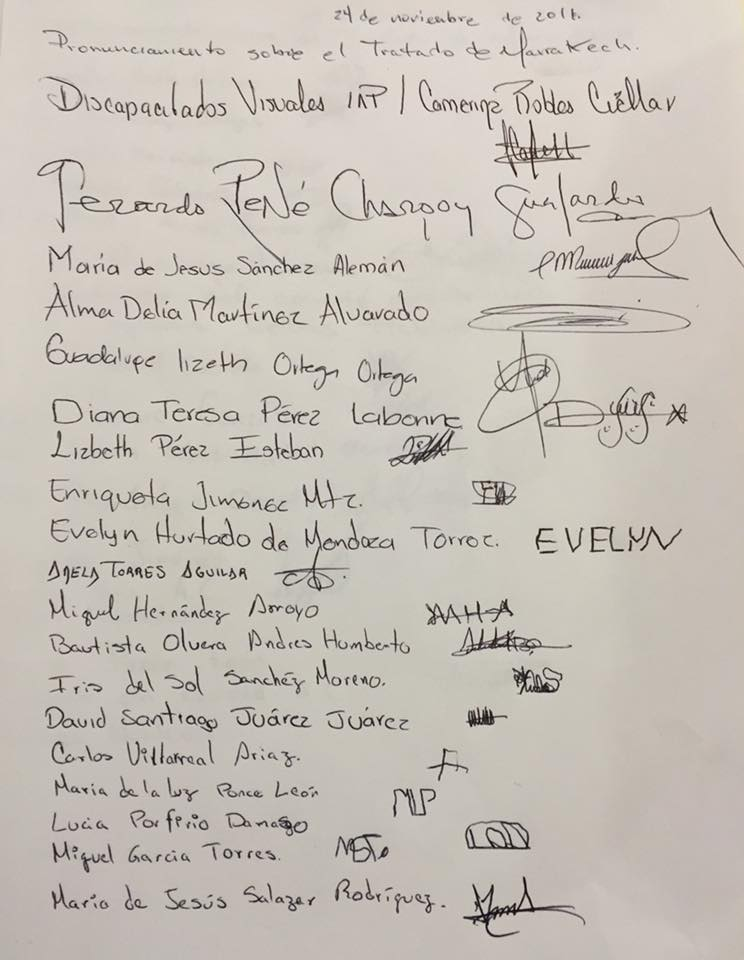 24 de noviembre de 2016.
Pronunciamiento sobre el Tratado de Marrakech.
Discapacitados Visuales IAP / Camerina Robles Cuéllar
Gerardo René Charqoy Guajardo
María de Jesús Sánchez Alemán
Alma Delia Martínez Alvarado
Guadalupe lizeth Ortega Ortega
Diana Teresa Pérez Labonne
Lizbeth Pérez Esteban
Enriqueta Jimenez Mtz.
Evelyn Hurtado de Mendoza Torroc. EVELYN
TORRES AGUILAR
Miguel Hernández Arroyo MHA
Bautista Olvera Andres Humberto
Iris del Sol Sanchéz Moreno.
David Santiago Juárez Juárez
Carlos Villarreal Ariaz.
Maria de la luz Ponce León MLP
Lucia Porfirio Damaso
Miguel Garcia Torres.
Maria de Jesús Salazar Rodríguez.